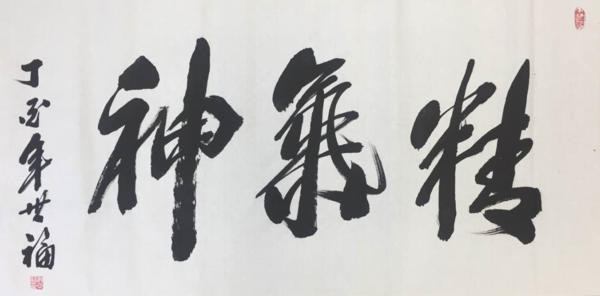 精氣神
丁酉年世福